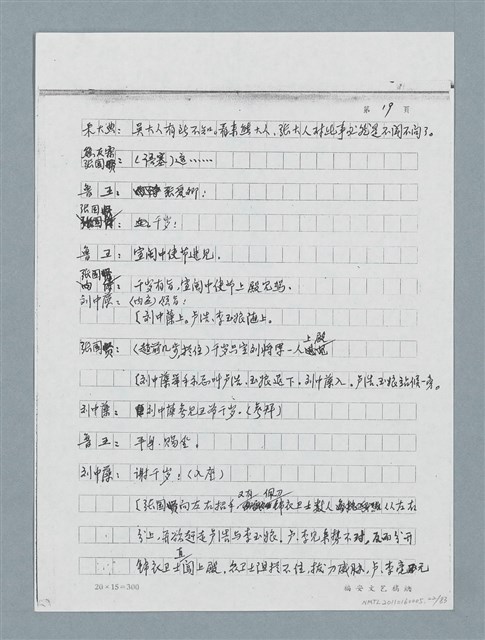 第 19 页
朱大典：吴大人有所不知。看来熊大人，张大人对此事又能是不闻不问了。
熊文举
张国
（语塞）这……
鲁 王：张爱卿：
张国
千岁！
鲁 王：宣闽中使节进见。
张国
千岁有旨，宣闽中使节上殿见驾。
刘中藻：（内应）领旨！
〔刘中藻上。卢浩、李玉娘随上。
张国：（趋前几步拦住）千岁只宣刘将军一人上殿
〔刘中藻举手示意叫卢浩、玉娘退下。刘中藻入。卢浩、玉娘站候一旁。
刘中藻：刘中藻参见卫带千岁。（参拜）
鲁 王：平身，赐坐。
刘中藻：谢千岁！（入座）
〔张国向左右招手，又有佩刀锦衣卫士数人从左右
分上，并欲赶走卢浩与李玉娘。卢、李见来势不对，反而分开
锦衣卫士直闯上殿，众卫士阻拦不住，拔刀威胁，卢、李毫无
20×15＝300
福安文艺稿纸
NMTL20110160005 22/83